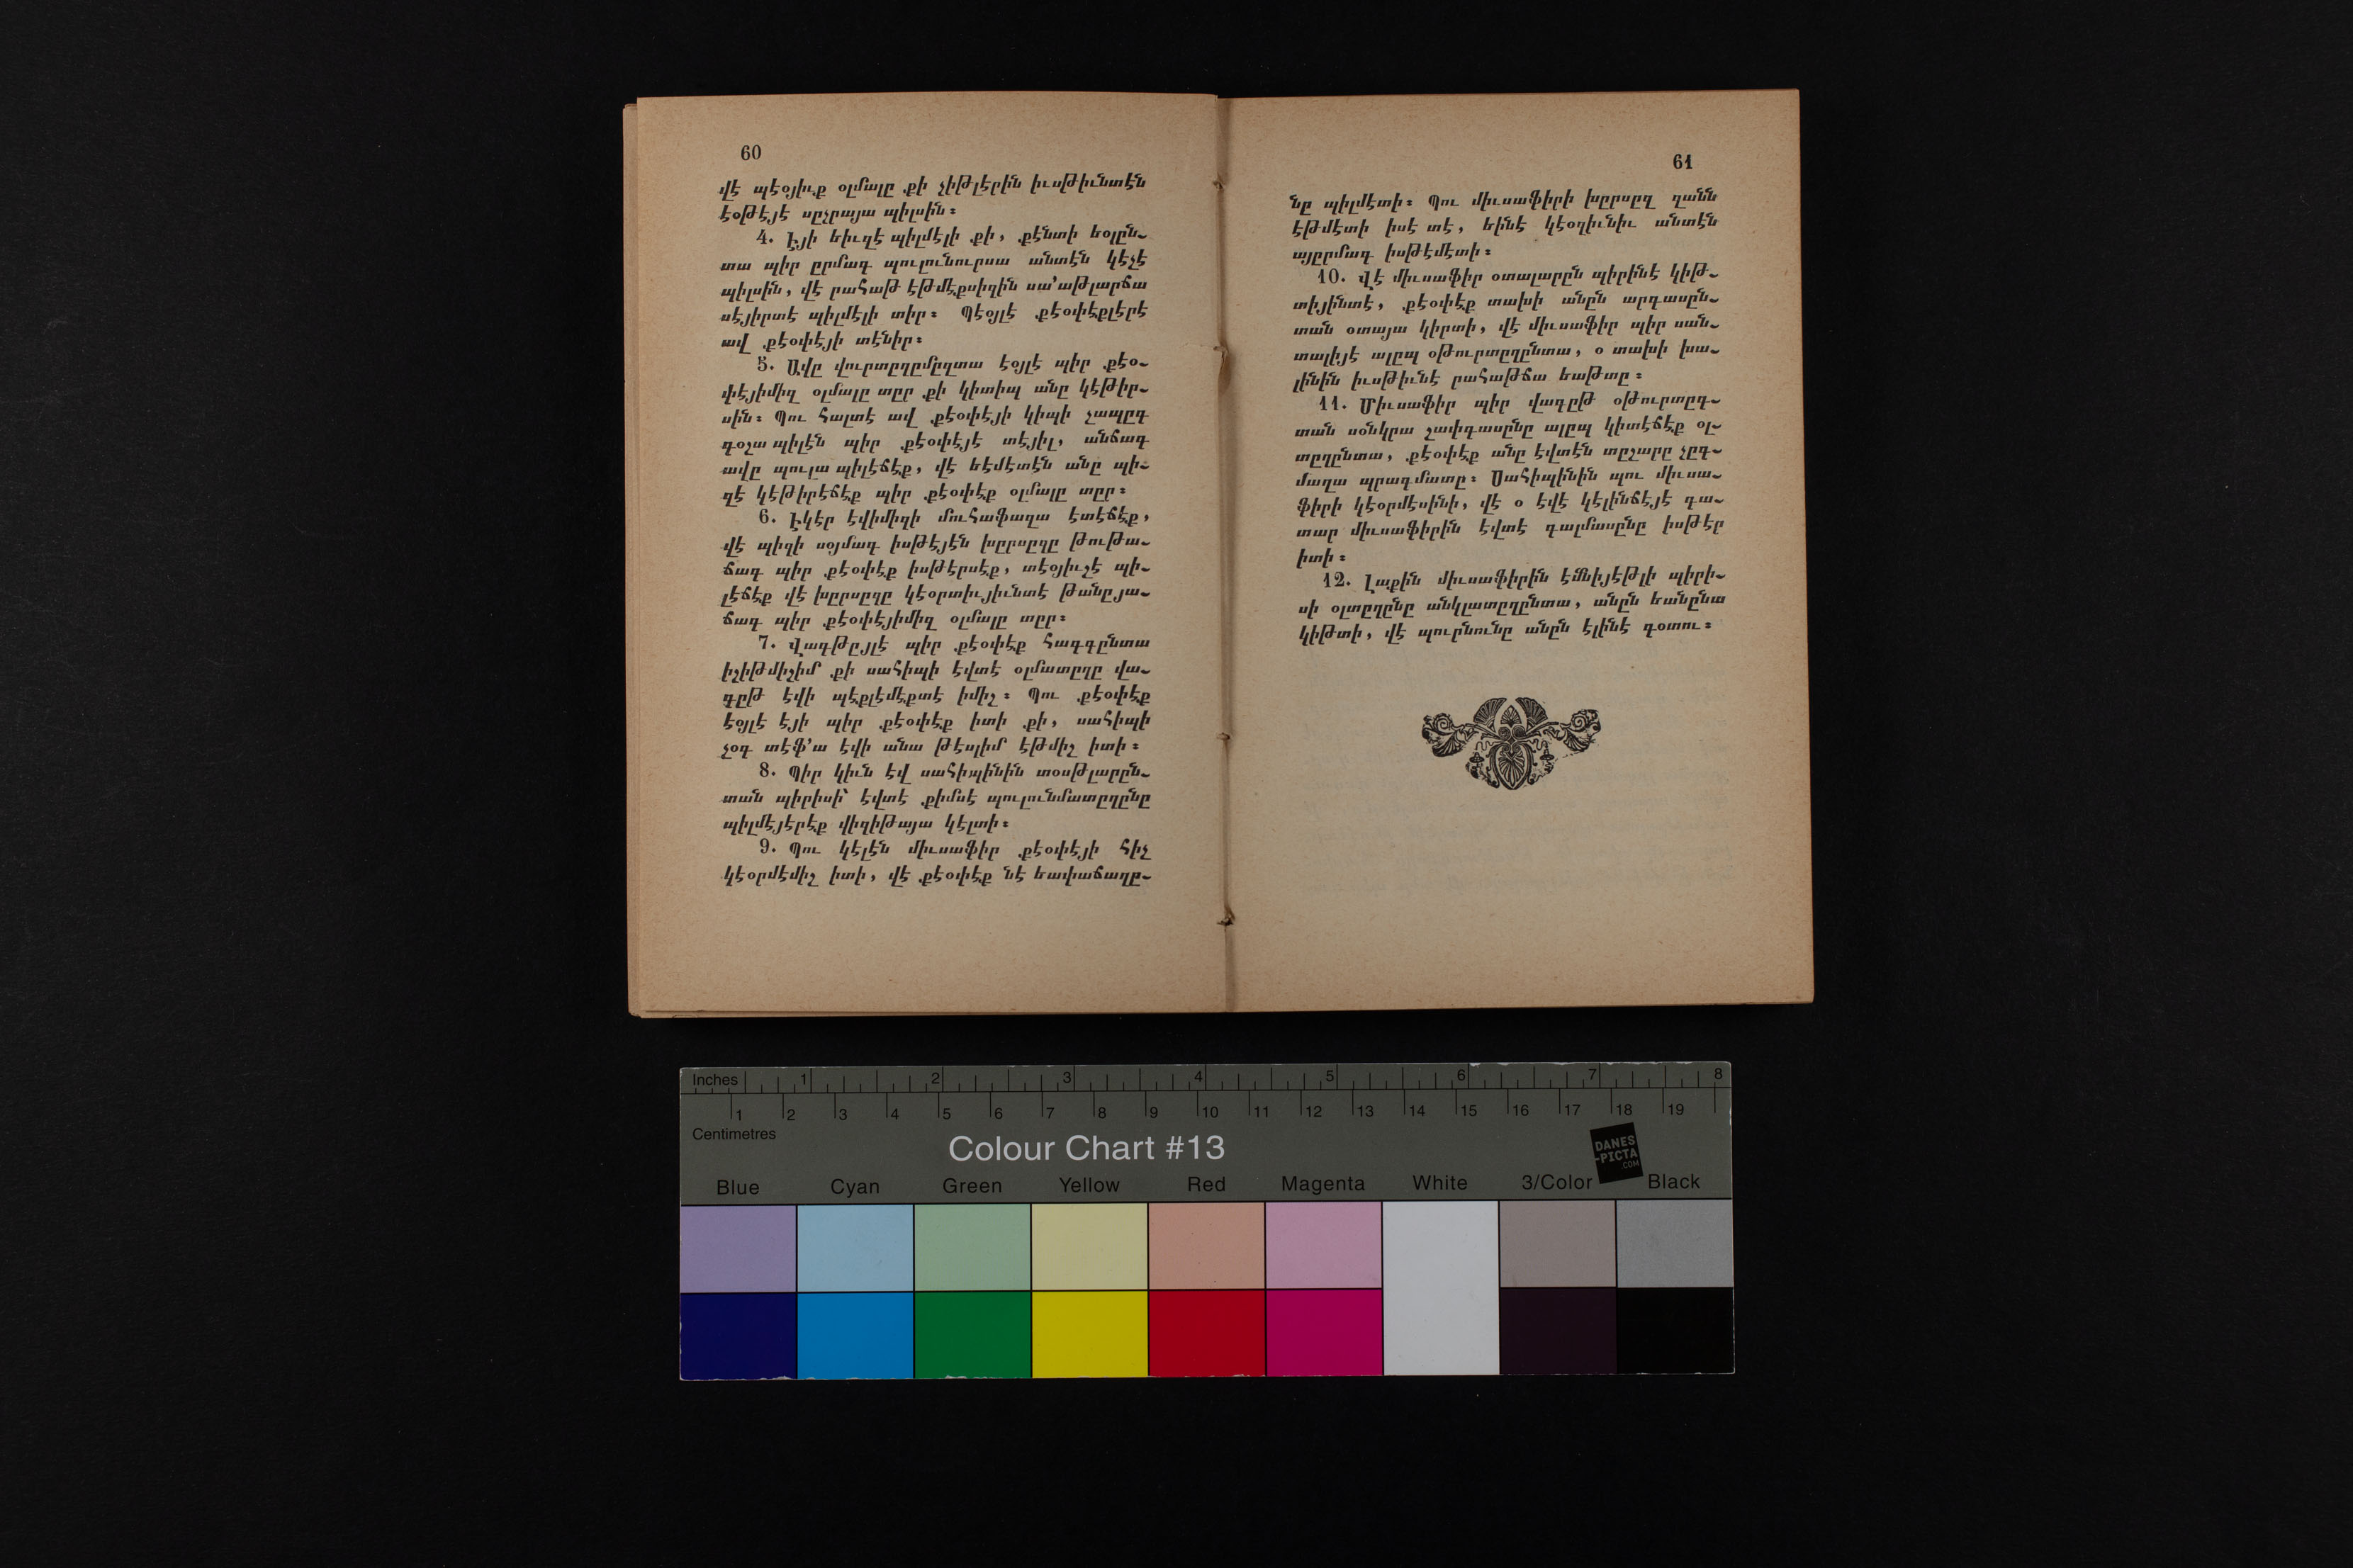 60
վէ պէօյիւք օլմալը քի չիթլէրին իւսթիւնտէն
էօթէյէ սըչրայա պիլսին։
4. Էյի եիւզէ պիլմէլի քի, քէնտի եօլըն-
տա պիր ըրմագ պուլունուրսա անտէն կէչէ
պիլսին, վէ րահաթ էթմէքսիզին սա՚աթլարճա
սէյիրտէ պիլմէլի տիր։ Պէօյլէ քէօփէքլէրէ
ավ քէօփէյի տէնիր։
5. Ավը վուրտըղըմըզտա էօյլէ պիր քէօ-
փէյիմիզ օլմալը տըր քի կիտիպ անը կէթիր-
սին։ Պու հալտէ ավ քէօփէյի կիպի չապըգ
գօշա պիլէն պիր քէօփէյէ տէյիլ, անճագ
ավը պուլա պիլէճէք, վէ եէմէտէն անը պի-
զէ կէթիրէճէք պիր քէօփէք օլմալը տըր։
6. Էկէր էվիմիզի մուհաֆազա էտէճէք,
վէ պիզի սօյմագ իսթէյէն խըրսըզը թութա-
ճագ պիր քէօփէք իսթէրսէք, տէօյիւշէ պի-
լէճէք վէ խըրսըզը կէօրտիւյիւնտէ թանըյա-
ճագ պիր քէօփէյիմիզ օլմալը տըր։
7. Վագթըյլէ պիր քէօփէք հագգընտա
իշիթմիշիմ քի սահիպի էվտէ օլմատըղը վա-
գըթ էվի պէքլէմէքտէ իմիշ։ Պու քէօփէք
էօյլէ էյի պիր քէօփէք իտի քի, սահիպի
չօգ տէֆ՚ա էվի անա թէսլիմ էթմիշ իտի։
8. Պիր կիւն էվ սահիպինին տօսթլարըն-
տան պիրիսի՝ էվտէ քիմսէ պուլունմատըղընը
պիլմէյէրէք վիզիթայա կէլտի։
9. Պու կէլէն միւսաֆիր քէօփէյի հիչ
կէօրմէմիշ իտի, վէ քէօփէք նէ եափաճաղը-
61
նը պիլմէտի։ Պու միւսաֆիրի խըրսըզ զանն
էթմէտի իսէ տէ, եինէ կէօզիւնիւ անտէն
այըրմագ իսթէմէտի։
10. Վէ միւսաֆիր օտալարըն պիրինէ կիթ-
տիյինտէ, քէօփէք տախի անըն արդասըն-
տան օտայա կիրտի, վէ միւսաֆիր պիր սան-
տալիյէ ալըպ օթուրտըղընտա, օ տախի խա-
լինին իւսթիւնէ րահաթճա եաթտը։
11. Միւսաֆիր պիր վագըթ օթուրտըգ-
տան սօնկրա շափգասընը ալըպ կիտէճէք օլ-
տըղընտա, քէօփէք անը էվտէն տըշարը չըգ-
մաղա պրագմատը։ Սահիպինին պու միւսա-
ֆիրի կէօրմէսինի, վէ օ էվէ կէլինճէյէ գա-
տար միւսաֆիրին էվտէ գալմասընը իսթէր
իտի։
12. Լաքին միւսաֆիրին էմնիյէթլի պիրի-
սի օլտըղընը անկլատըղընտա, անըն եանընա
կիթտի, վէ պուրնունը անըն էլինէ գօտու։
Inches 1 2 3 4 5 6 7 8
1 2 3 4 5 6 7 8 9 10 11 12 13 14 15 16 17 18 19
Centimetres
Colour Chart #13
DANES
-PICTA
.COM
Blue Cyan Green Yellow Red Magenta White 3/Color Black